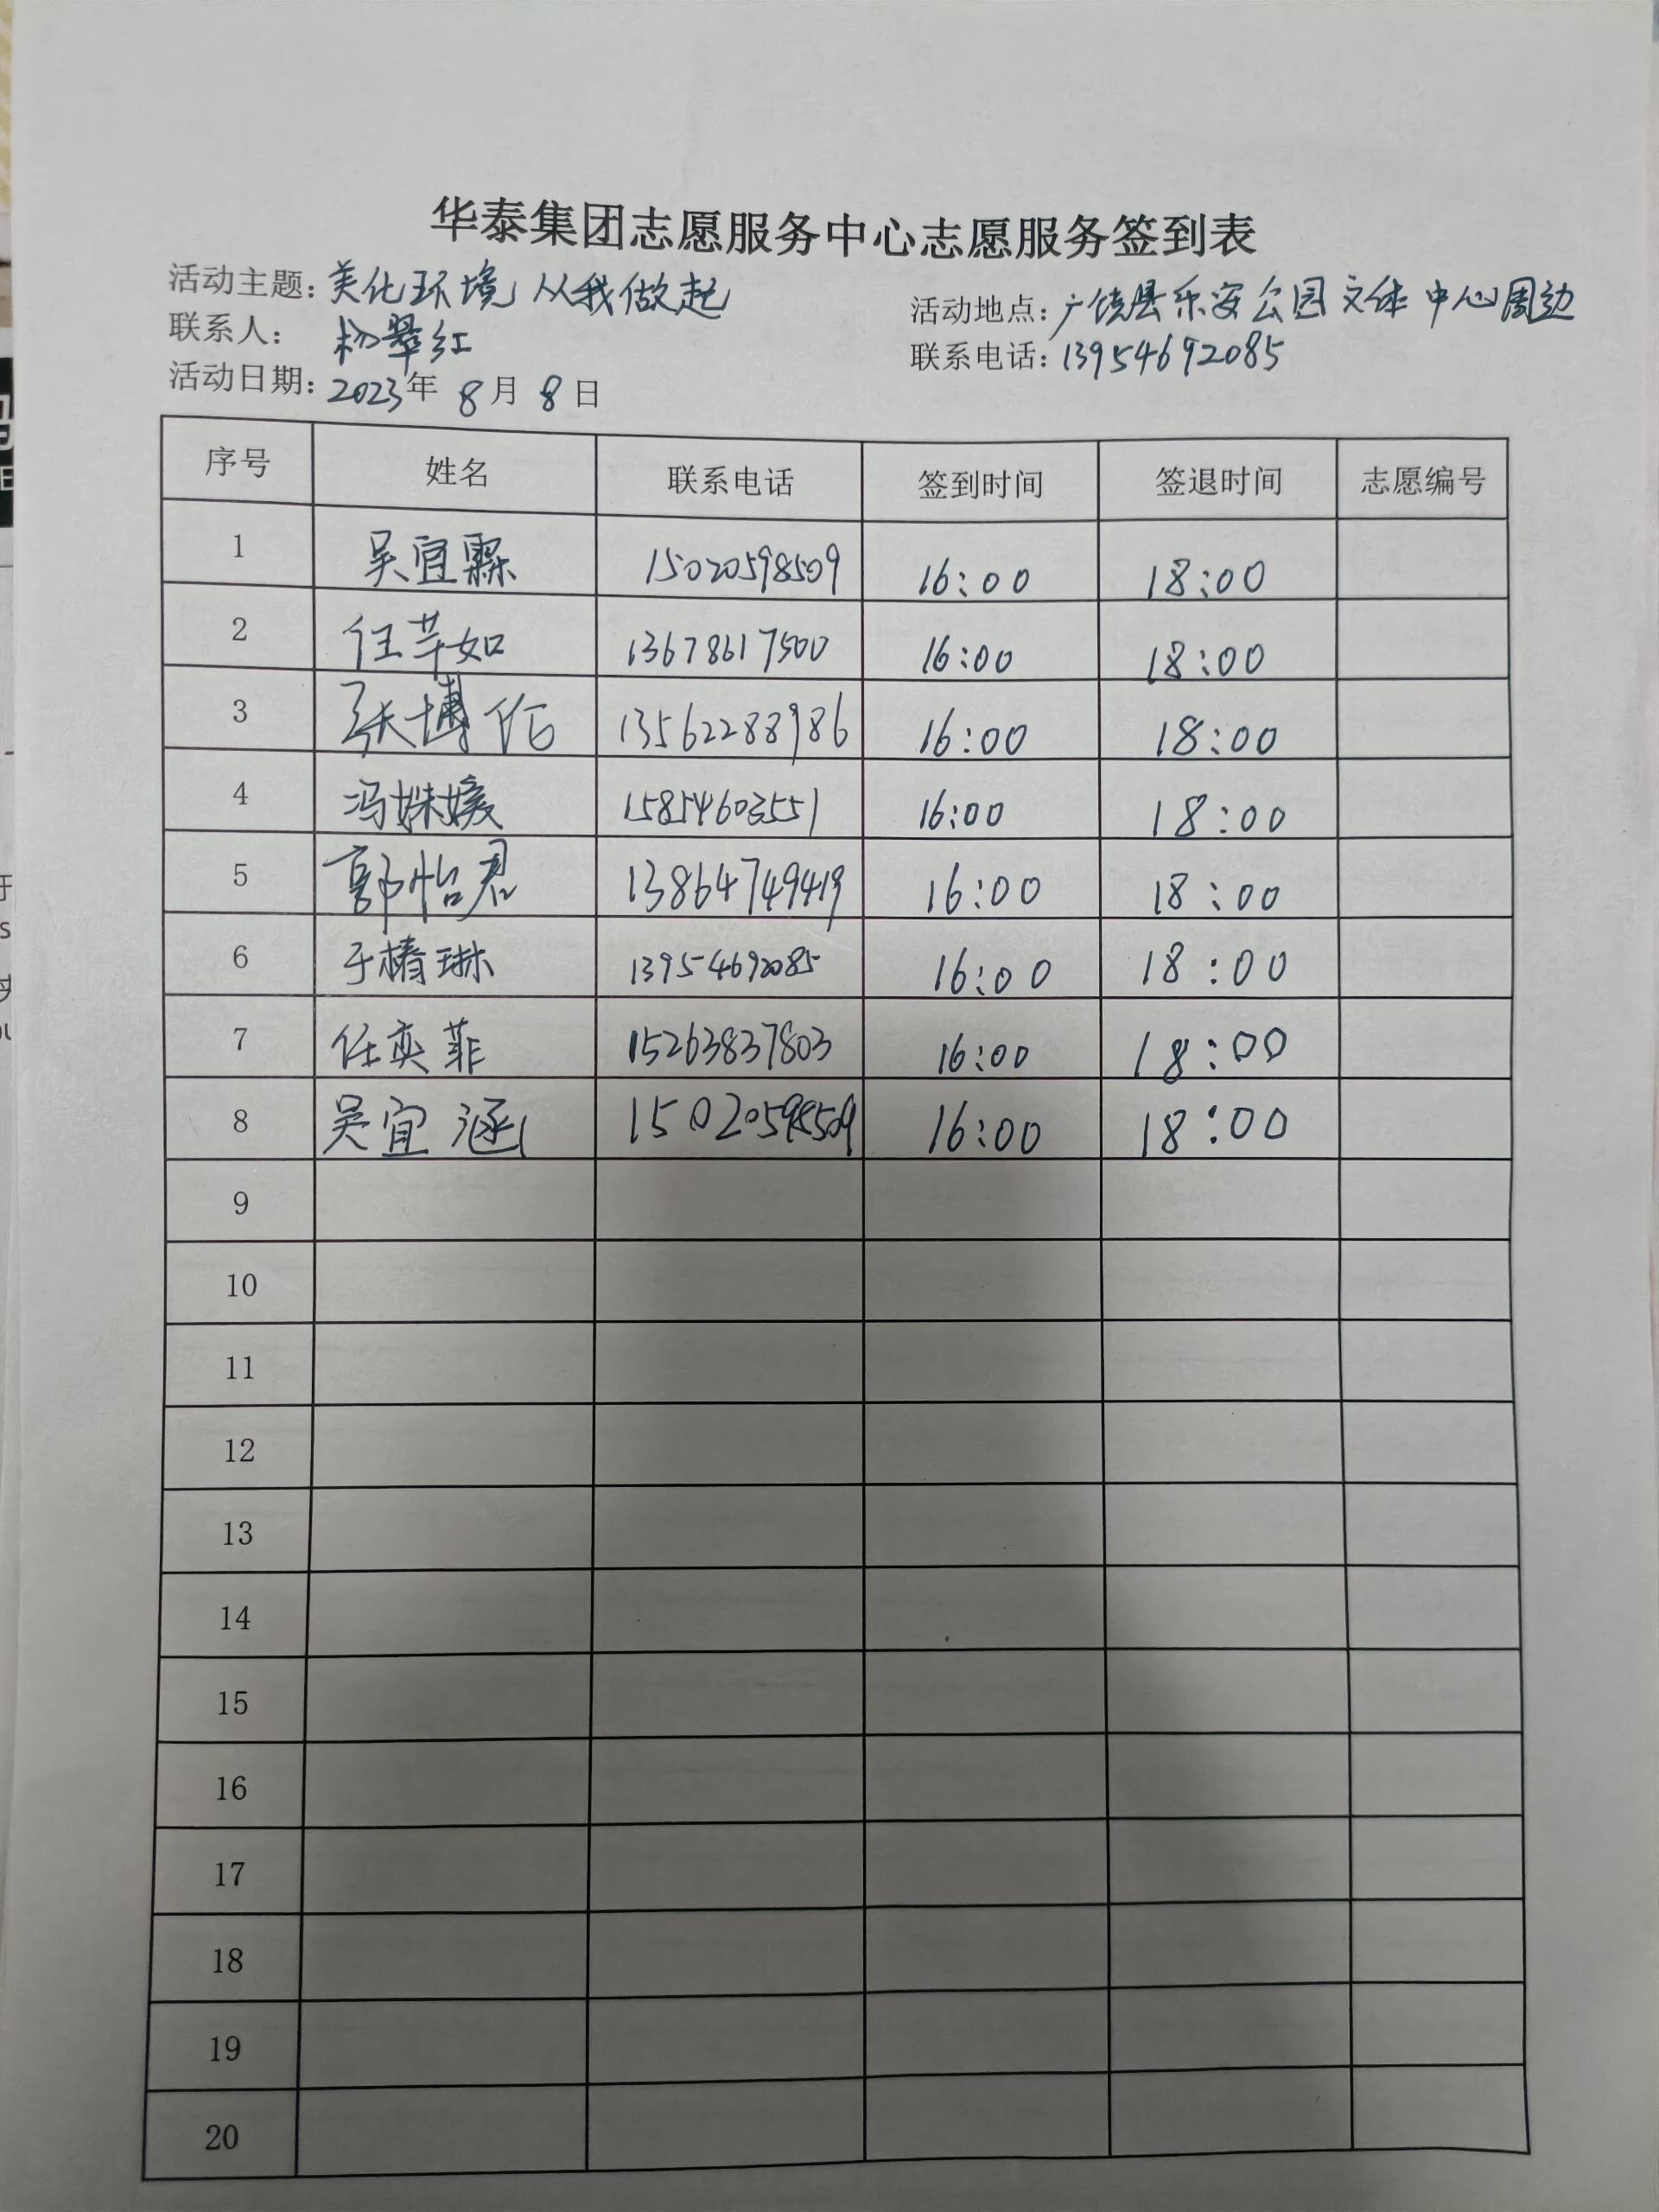 华泰集团志愿服务中心志愿服务签到表
活动主题：美化环境 从我做起 活动地点：广饶县乐安公园文体中心周边
联系人：杨翠红 联系电话：13954692085
活动日期：2023年 8月 8日
序号 姓名 联系电话 签到时间 签退时间 志愿编号
1 吴宜霖 15020598509 16:00 18:00
2 任芊如 13678617500 16:00 18:00
3 张博伦 13562288986 16:00 18:00
4 冯姝媛 15854603551 16:00 18:00
5 郭怡君 13864749419 16:00 18:00
6 于椿琳 13954692085 16:00 18:00
7 任奕菲 15263837803 16:00 18:00
8 吴宜涵 15020598509 16:00 18:00
9
10
11
12
13
14
15
16
17
18
19
20